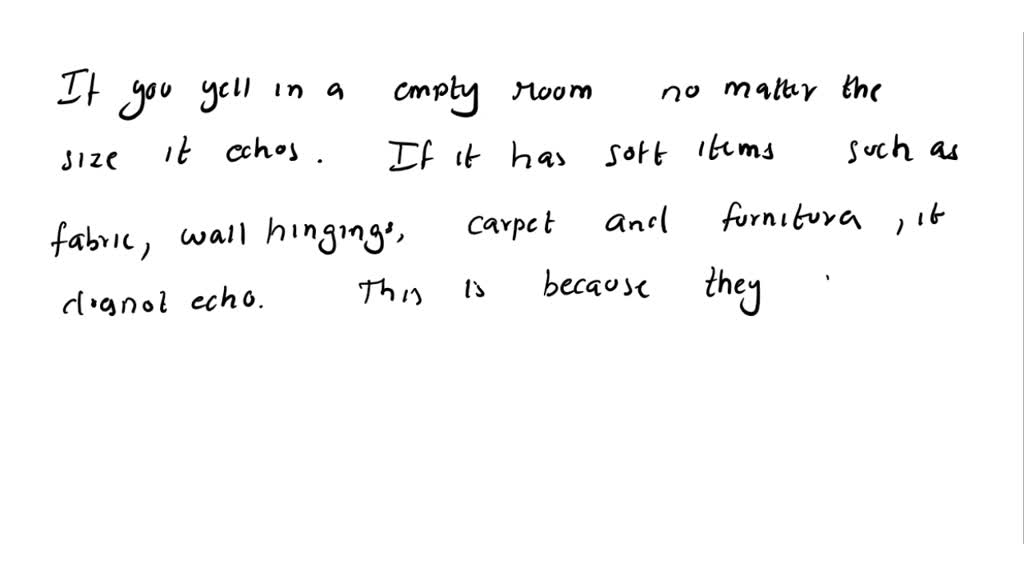 If you yell in a empty room no matter the
size it echos. If it has soft items such as
fabric, wall hingings, carpet and furnitura, it
doesnot echo. This is because they